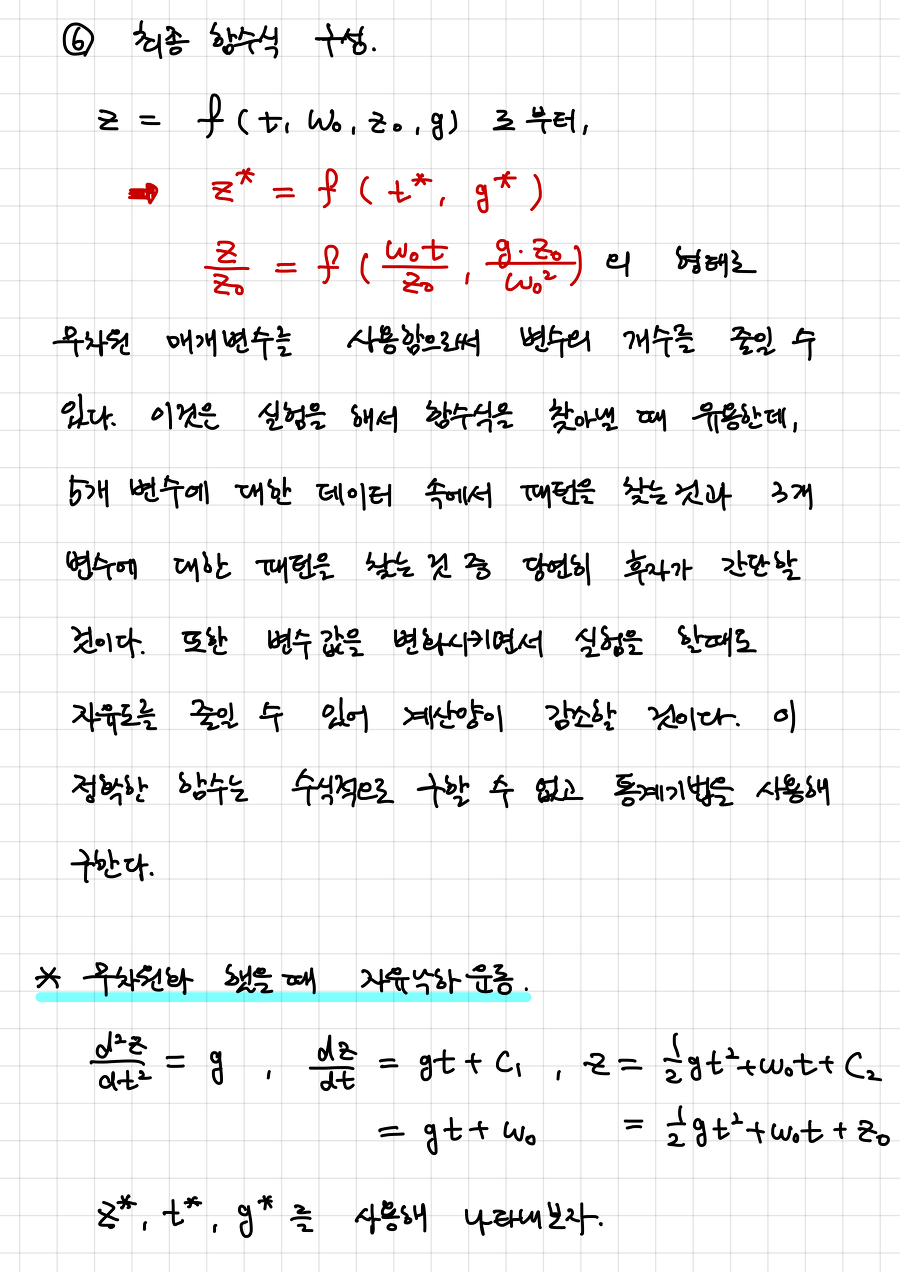 ⑥ 최종 함수식 구성.
z = f(t, w₀, z₀, g) 로부터,
➡ z* = f(t*, g*)
z/z₀ = f(w₀t/z₀, g·z₀/w₀²) 의 형태로
무차원 매개변수를 사용함으로써 변수의 개수를 줄일 수
있다. 이것은 실험을 해서 함수식을 찾아낼 때 유용한데,
5개 변수에 대한 데이터 속에서 패턴을 찾는것과 3개
변수에 대한 패턴을 찾는 것 중 당연히 후자가 간단할
것이다. 또한 변수값을 변화시키면서 실험을 할때도
자유도를 줄일 수 있어 계산양이 감소할 것이다. 이
정확한 함수는 수식적으로 구할 수 없고 통계기법을 사용해
구한다.
* 무차원화 했을때 자유낙하 운동.
d²z/dt² = g , dz/dt = gt + C₁ , z = 1/2 gt² + w₀t + C₂
= gt + w₀ = 1/2 gt² + w₀t + z₀
z*, t*, g* 를 사용해 나타내보자.